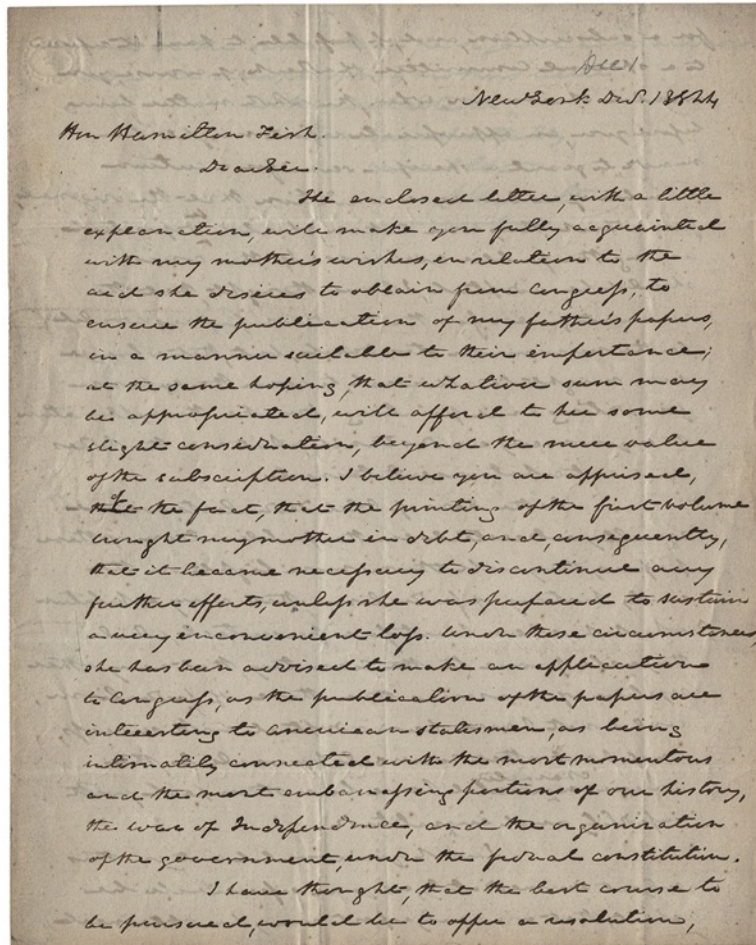 Dec 1
New York Dec. 1844
Hon Hamilton Fish.
Dear Sir
The enclosed letter, with a little
explanation, will make you fully acquainted
with my mother's wishes, in relation to the
aid she desires to obtain from Congress, to
ensure the publication of my father's papers,
in a manner suitable to their importance;
at the same hoping, that whatever sum may
be appropriated, will afford to her some
slight consideration, beyond the mere value
of the subscription. I believe you are apprised,
of the fact, that the printing of the first volume
brought my mother in debt, and, consequently,
that it became necessary to discontinue any
further efforts, unless she was prepared to sustain
a very inconvenient loss. Under these circumstances,
she has been advised to make an application
to Congress, as the publication of the papers are
interesting to American statesmen, as being
intimately connected with the most momentous
and the most embarrassing portions of our history,
the war of Independence, and the organization
of the government, under the federal constitution.
I have thought, that the best course to
be pursued, would be to offer a resolution,